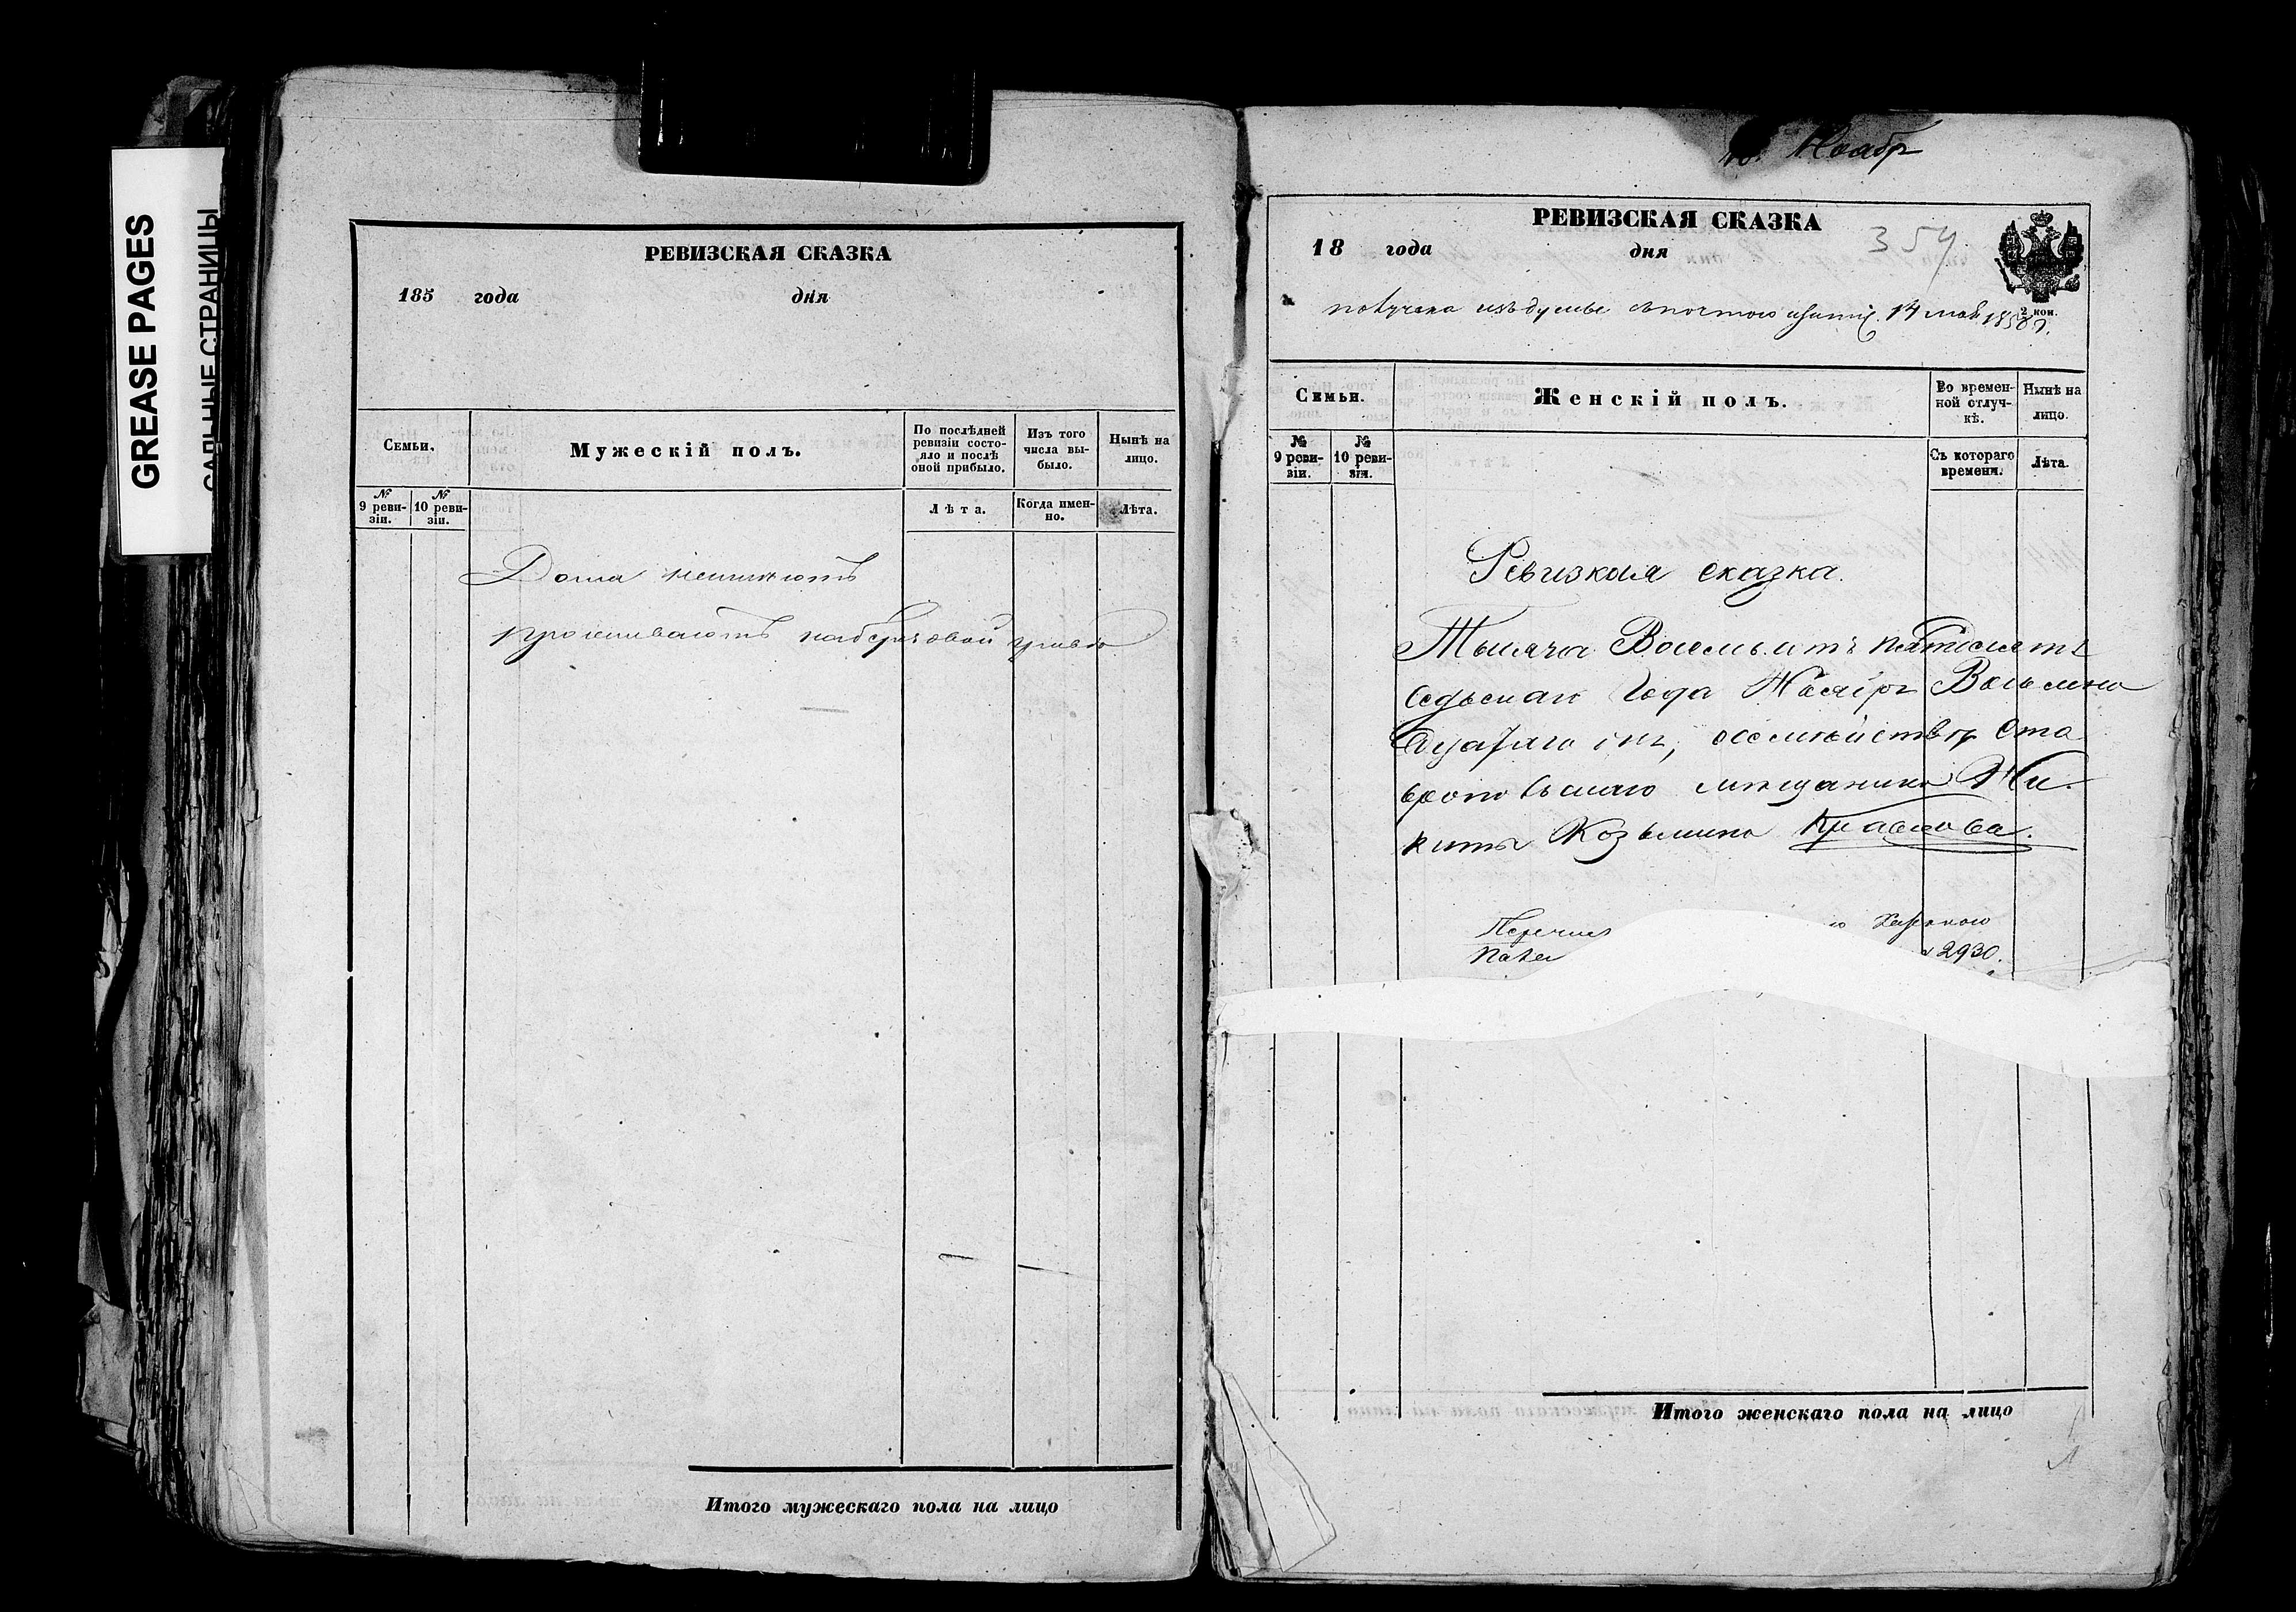 GREASE PAGES
САЛЬНЫЕ СТРАНИЦЫ
РЕВИЗСКАЯ СКАЗКА
185 года дня
Семьи.
Мужескій полъ.
По послѣдней
ревизіи состо-
яло и послѣ
оной прибыло.
Изъ того
числа вы-
было.
Нынѣ на
лицо.
№
9 реви-
зіи.
№
10 реви-
зіи.
Лѣта.
Когда имен-
но.
Лѣта.
Дома неимѣютъ
проживаютъ
Итого мужескаго пола на лицо
Ноябр
РЕВИЗСКАЯ СКАЗКА
18 года дня
354
2 коп.
получена изъ думы 14 мая 1858 г.
Семьи.
Женскій полъ.
Во времен-
ной отлуч-
кѣ.
Нынѣ на
лицо.
№
9 реви-
зіи.
№
10 реви-
зіи.
Съ котораго
времени.
Лѣта.
Ревизкая сказка.
Тысяча Восемьсотъ пятдесятъ
седьмаго Года Ноября Восьмна
дцатаго дня, о семействѣ Ста
вропольскаго мѣщанина Ни-
киты Козьмина Краснова.
Перечис
2930.
Итого женскаго пола на лицо